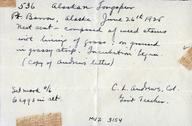 536 Alaskan Longspur
Pt. Barrow, Alaska June 26th 1925
Nest set - composed of weed stems
with lining of grass, on ground
in grassy strip. Incubation begun.
(Copy of Andrews letter)
Set mark 9/6
6 eggs in set
C. L. Andrews, Col.
Govt Teacher.
MVZ 3154